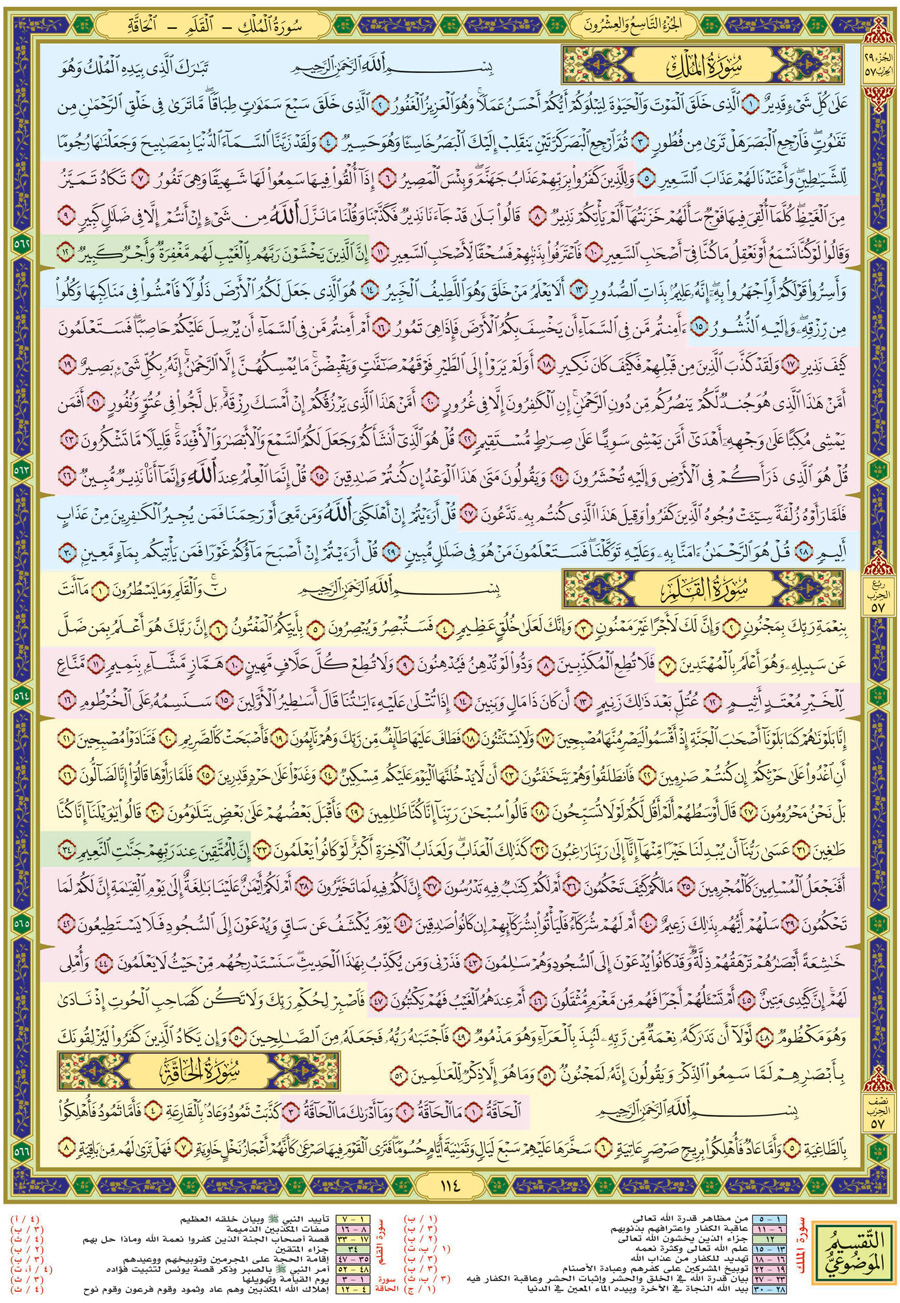 سُورَةُ المُلْكِ - القَلَمِ - الحَاقَّةِ
الجُزْءُ التَّاسِعُ وَالعِشْرُونَ
الجزء ٢٩
الحزب ٥٧
سُورَةُ المُلْكِ بِسْمِ ٱللَّهِ ٱلرَّحْمَٰنِ ٱلرَّحِيمِ تَبَٰرَكَ ٱلَّذِى بِيَدِهِ ٱلْمُلْكُ وَهُوَ
عَلَىٰ كُلِّ شَىْءٍ قَدِيرٌ ١ ٱلَّذِى خَلَقَ ٱلْمَوْتَ وَٱلْحَيَوٰةَ لِيَبْلُوَكُمْ أَيُّكُمْ أَحْسَنُ عَمَلًا ۚ وَهُوَ ٱلْعَزِيزُ ٱلْغَفُورُ ٢ ٱلَّذِى خَلَقَ سَبْعَ سَمَٰوَٰتٍ طِبَاقًا ۖ مَّا تَرَىٰ فِى خَلْقِ ٱلرَّحْمَٰنِ مِن
تَفَٰوُتٍ ۖ فَٱرْجِعِ ٱلْبَصَرَ هَلْ تَرَىٰ مِن فُطُورٍ ٣ ثُمَّ ٱرْجِعِ ٱلْبَصَرَ كَرَّتَيْنِ يَنقَلِبْ إِلَيْكَ ٱلْبَصَرُ خَاسِئًا وَهُوَ حَسِيرٌ ٤ وَلَقَدْ زَيَّنَّا ٱلسَّمَآءَ ٱلدُّنْيَا بِمَصَٰبِيحَ وَجَعَلْنَٰهَا رُجُومًا
لِّلشَّيَٰطِينِ ۖ وَأَعْتَدْنَا لَهُمْ عَذَابَ ٱلسَّعِيرِ ٥ وَلِلَّذِينَ كَفَرُوا۟ بِرَبِّهِمْ عَذَابُ جَهَنَّمَ ۖ وَبِئْسَ ٱلْمَصِيرُ ٦ إِذَآ أُلْقُوا۟ فِيهَا سَمِعُوا۟ لَهَا شَهِيقًا وَهِىَ تَفُورُ ٧ تَكَادُ تَمَيَّزُ
مِنَ ٱلْغَيْظِ ۖ كُلَّمَآ أُلْقِىَ فِيهَا فَوْجٌ سَأَلَهُمْ خَزَنَتُهَآ أَلَمْ يَأْتِكُمْ نَذِيرٌ ٨ قَالُوا۟ بَلَىٰ قَدْ جَآءَنَا نَذِيرٌ فَكَذَّبْنَا وَقُلْنَا مَا نَزَّلَ ٱللَّهُ مِن شَىْءٍ إِنْ أَنتُمْ إِلَّا فِى ضَلَٰلٍ كَبِيرٍ ٩
وَقَالُوا۟ لَوْ كُنَّا نَسْمَعُ أَوْ نَعْقِلُ مَا كُنَّا فِىٓ أَصْحَٰبِ ٱلسَّعِيرِ ١٠ فَٱعْتَرَفُوا۟ بِذَنۢبِهِمْ فَسُحْقًا لِّأَصْحَٰبِ ٱلسَّعِيرِ ١١ إِنَّ ٱلَّذِينَ يَخْشَوْنَ رَبَّهُم بِٱلْغَيْبِ لَهُم مَّغْفِرَةٌ وَأَجْرٌ كَبِيرٌ ١٢
٥٦٢
وَأَسِرُّوا۟ قَوْلَكُمْ أَوِ ٱجْهَرُوا۟ بِهِۦٓ ۖ إِنَّهُۥ عَلِيمٌۢ بِذَاتِ ٱلصُّدُورِ ١٣ أَلَا يَعْلَمُ مَنْ خَلَقَ وَهُوَ ٱللَّطِيفُ ٱلْخَبِيرُ ١٤ هُوَ ٱلَّذِى جَعَلَ لَكُمُ ٱلْأَرْضَ ذَلُولًا فَٱمْشُوا۟ فِى مَنَاكِبِهَا وَكُلُوا۟
مِن رِّزْقِهِۦ ۖ وَإِلَيْهِ ٱلنُّشُورُ ١٥ ءَأَمِنتُم مَّن فِى ٱلسَّمَآءِ أَن يَخْسِفَ بِكُمُ ٱلْأَرْضَ فَإِذَا هِىَ تَمُورُ ١٦ أَمْ أَمِنتُم مَّن فِى ٱلسَّمَآءِ أَن يُرْسِلَ عَلَيْكُمْ حَاصِبًا ۖ فَسَتَعْلَمُونَ
كَيْفَ نَذِيرِ ١٧ وَلَقَدْ كَذَّبَ ٱلَّذِينَ مِن قَبْلِهِمْ فَكَيْفَ كَانَ نَكِيرِ ١٨ أَوَلَمْ يَرَوْا۟ إِلَى ٱلطَّيْرِ فَوْقَهُمْ صَٰٓفَّٰتٍ وَيَقْبِضْنَ ۚ مَا يُمْسِكُهُنَّ إِلَّا ٱلرَّحْمَٰنُ ۚ إِنَّهُۥ بِكُلِّ شَىْءٍۭ بَصِيرٌ ١٩
أَمَّنْ هَٰذَا ٱلَّذِى هُوَ جُندٌ لَّكُمْ يَنصُرُكُم مِّن دُونِ ٱلرَّحْمَٰنِ ۚ إِنِ ٱلْكَٰفِرُونَ إِلَّا فِى غُرُورٍ ٢٠ أَمَّنْ هَٰذَا ٱلَّذِى يَرْزُقُكُمْ إِنْ أَمْسَكَ رِزْقَهُۥ ۚ بَل لَّجُّوا۟ فِى عُتُوٍّ وَنُفُورٍ ٢١ أَفَمَن
يَمْشِى مُكِبًّا عَلَىٰ وَجْهِهِۦٓ أَهْدَىٰٓ أَمَّن يَمْشِى سَوِيًّا عَلَىٰ صِرَٰطٍ مُّسْتَقِيمٍ ٢٢ قُلْ هُوَ ٱلَّذِىٓ أَنشَأَكُمْ وَجَعَلَ لَكُمُ ٱلسَّمْعَ وَٱلْأَبْصَٰرَ وَٱلْأَفْـِٔدَةَ ۖ قَلِيلًا مَّا تَشْكُرُونَ ٢٣
قُلْ هُوَ ٱلَّذِى ذَرَأَكُمْ فِى ٱلْأَرْضِ وَإِلَيْهِ تُحْشَرُونَ ٢٤ وَيَقُولُونَ مَتَىٰ هَٰذَا ٱلْوَعْدُ إِن كُنتُمْ صَٰدِقِينَ ٢٥ قُلْ إِنَّمَا ٱلْعِلْمُ عِندَ ٱللَّهِ وَإِنَّمَآ أَنَا۠ نَذِيرٌ مُّبِينٌ ٢٦
٥٦٣
فَلَمَّا رَأَوْهُ زُلْفَةً سِيٓـَٔتْ وُجُوهُ ٱلَّذِينَ كَفَرُوا۟ وَقِيلَ هَٰذَا ٱلَّذِى كُنتُم بِهِۦ تَدَّعُونَ ٢٧ قُلْ أَرَءَيْتُمْ إِنْ أَهْلَكَنِىَ ٱللَّهُ وَمَن مَّعِىَ أَوْ رَحِمَنَا فَمَن يُجِيرُ ٱلْكَٰفِرِينَ مِنْ عَذَابٍ
أَلِيمٍ ٢٨ قُلْ هُوَ ٱلرَّحْمَٰنُ ءَامَنَّا بِهِۦ وَعَلَيْهِ تَوَكَّلْنَا ۖ فَسَتَعْلَمُونَ مَنْ هُوَ فِى ضَلَٰلٍ مُّبِينٍ ٢٩ قُلْ أَرَءَيْتُمْ إِنْ أَصْبَحَ مَآؤُكُمْ غَوْرًا فَمَن يَأْتِيكُم بِمَآءٍ مَّعِينٍۭ ٣٠
ربع الحزب ٥٧
سُورَةُ القَلَمِ بِسْمِ ٱللَّهِ ٱلرَّحْمَٰنِ ٱلرَّحِيمِ نٓ ۚ وَٱلْقَلَمِ وَمَا يَسْطُرُونَ ١ مَآ أَنتَ
بِنِعْمَةِ رَبِّكَ بِمَجْنُونٍ ٢ وَإِنَّ لَكَ لَأَجْرًا غَيْرَ مَمْنُونٍ ٣ وَإِنَّكَ لَعَلَىٰ خُلُقٍ عَظِيمٍ ٤ فَسَتُبْصِرُ وَيُبْصِرُونَ ٥ بِأَييِّكُمُ ٱلْمَفْتُونُ ٦ إِنَّ رَبَّكَ هُوَ أَعْلَمُ بِمَن ضَلَّ
عَن سَبِيلِهِۦ وَهُوَ أَعْلَمُ بِٱلْمُهْتَدِينَ ٧ فَلَا تُطِعِ ٱلْمُكَذِّبِينَ ٨ وَدُّوا۟ لَوْ تُدْهِنُ فَيُدْهِنُونَ ٩ وَلَا تُطِعْ كُلَّ حَلَّافٍ مَّهِينٍ ١٠ هَمَّازٍ مَّشَّآءٍۭ بِنَمِيمٍ ١١ مَّنَّاعٍ
لِّلْخَيْرِ مُعْتَدٍ أَثِيمٍ ١٢ عُتُلٍّۭ بَعْدَ ذَٰلِكَ زَنِيمٍ ١٣ أَن كَانَ ذَا مَالٍ وَبَنِينَ ١٤ إِذَا تُتْلَىٰ عَلَيْهِ ءَايَٰتُنَا قَالَ أَسَٰطِيرُ ٱلْأَوَّلِينَ ١٥ سَنَسِمُهُۥ عَلَى ٱلْخُرْطُومِ ١٦
٥٦٤
إِنَّا بَلَوْنَٰهُمْ كَمَا بَلَوْنَآ أَصْحَٰبَ ٱلْجَنَّةِ إِذْ أَقْسَمُوا۟ لَيَصْرِمُنَّهَا مُصْبِحِينَ ١٧ وَلَا يَسْتَثْنُونَ ١٨ فَطَافَ عَلَيْهَا طَآئِفٌ مِّن رَّبِّكَ وَهُمْ نَآئِمُونَ ١٩ فَأَصْبَحَتْ كَٱلصَّرِيمِ ٢٠ فَتَنَادَوْا۟ مُصْبِحِينَ ٢١
أَنِ ٱغْدُوا۟ عَلَىٰ حَرْثِكُمْ إِن كُنتُمْ صَٰرِمِينَ ٢٢ فَٱنطَلَقُوا۟ وَهُمْ يَتَخَٰفَتُونَ ٢٣ أَن لَّا يَدْخُلَنَّهَا ٱلْيَوْمَ عَلَيْكُم مِّسْكِينٌ ٢٤ وَغَدَوْا۟ عَلَىٰ حَرْدٍ قَٰدِرِينَ ٢٥ فَلَمَّا رَأَوْهَا قَالُوٓا۟ إِنَّا لَضَآلُّونَ ٢٦
بَلْ نَحْنُ مَحْرُومُونَ ٢٧ قَالَ أَوْسَطُهُمْ أَلَمْ أَقُل لَّكُمْ لَوْلَا تُسَبِّحُونَ ٢٨ قَالُوا۟ سُبْحَٰنَ رَبِّنَآ إِنَّا كُنَّا ظَٰلِمِينَ ٢٩ فَأَقْبَلَ بَعْضُهُمْ عَلَىٰ بَعْضٍ يَتَلَٰوَمُونَ ٣٠ قَالُوا۟ يَٰوَيْلَنَآ إِنَّا كُنَّا
طَٰغِينَ ٣١ عَسَىٰ رَبُّنَآ أَن يُبْدِلَنَا خَيْرًا مِّنْهَآ إِنَّآ إِلَىٰ رَبِّنَا رَٰغِبُونَ ٣٢ كَذَٰلِكَ ٱلْعَذَابُ ۖ وَلَعَذَابُ ٱلْءَاخِرَةِ أَكْبَرُ ۚ لَوْ كَانُوا۟ يَعْلَمُونَ ٣٣ إِنَّ لِلْمُتَّقِينَ عِندَ رَبِّهِمْ جَنَّٰتِ ٱلنَّعِيمِ ٣٤
أَفَنَجْعَلُ ٱلْمُسْلِمِينَ كَٱلْمُجْرِمِينَ ٣٥ مَا لَكُمْ كَيْفَ تَحْكُمُونَ ٣٦ أَمْ لَكُمْ كِتَٰبٌ فِيهِ تَدْرُسُونَ ٣٧ إِنَّ لَكُمْ فِيهِ لَمَا تَخَيَّرُونَ ٣٨ أَمْ لَكُمْ أَيْمَٰنٌ عَلَيْنَا بَٰلِغَةٌ إِلَىٰ يَوْمِ ٱلْقِيَٰمَةِ ۙ إِنَّ لَكُمْ لَمَا
تَحْكُمُونَ ٣٩ سَلْهُمْ أَيُّهُم بِذَٰلِكَ زَعِيمٌ ٤٠ أَمْ لَهُمْ شُرَكَآءُ فَلْيَأْتُوا۟ بِشُرَكَآئِهِمْ إِن كَانُوا۟ صَٰدِقِينَ ٤١ يَوْمَ يُكْشَفُ عَن سَاقٍ وَيُدْعَوْنَ إِلَى ٱلسُّجُودِ فَلَا يَسْتَطِيعُونَ ٤٢
٥٦٥
خَٰشِعَةً أَبْصَٰرُهُمْ تَرْهَقُهُمْ ذِلَّةٌ ۖ وَقَدْ كَانُوا۟ يُدْعَوْنَ إِلَى ٱلسُّجُودِ وَهُمْ سَٰلِمُونَ ٤٣ فَذَرْنِى وَمَن يُكَذِّبُ بِهَٰذَا ٱلْحَدِيثِ ۖ سَنَسْتَدْرِجُهُم مِّنْ حَيْثُ لَا يَعْلَمُونَ ٤٤ وَأُمْلِى
لَهُمْ ۚ إِنَّ كَيْدِى مَتِينٌ ٤٥ أَمْ تَسْـَٔلُهُمْ أَجْرًا فَهُم مِّن مَّغْرَمٍ مُّثْقَلُونَ ٤٦ أَمْ عِندَهُمُ ٱلْغَيْبُ فَهُمْ يَكْتُبُونَ ٤٧ فَٱصْبِرْ لِحُكْمِ رَبِّكَ وَلَا تَكُن كَصَاحِبِ ٱلْحُوتِ إِذْ نَادَىٰ
وَهُوَ مَكْظُومٌ ٤٨ لَّوْلَآ أَن تَدَٰرَكَهُۥ نِعْمَةٌ مِّن رَّبِّهِۦ لَنُبِذَ بِٱلْعَرَآءِ وَهُوَ مَذْمُومٌ ٤٩ فَٱجْتَبَٰهُ رَبُّهُۥ فَجَعَلَهُۥ مِنَ ٱلصَّٰلِحِينَ ٥٠ وَإِن يَكَادُ ٱلَّذِينَ كَفَرُوا۟ لَيُزْلِقُونَكَ
بِأَبْصَٰرِهِمْ لَمَّا سَمِعُوا۟ ٱلذِّكْرَ وَيَقُولُونَ إِنَّهُۥ لَمَجْنُونٌ ٥١ وَمَا هُوَ إِلَّا ذِكْرٌ لِّلْعَٰلَمِينَ ٥٢ سُورَةُ الحَاقَّةِ
نصف الحزب ٥٧
بِسْمِ ٱللَّهِ ٱلرَّحْمَٰنِ ٱلرَّحِيمِ ٱلْحَآقَّةُ ١ مَا ٱلْحَآقَّةُ ٢ وَمَآ أَدْرَىٰكَ مَا ٱلْحَآقَّةُ ٣ كَذَّبَتْ ثَمُودُ وَعَادٌۢ بِٱلْقَارِعَةِ ٤ فَأَمَّا ثَمُودُ فَأُهْلِكُوا۟
بِٱلطَّاغِيَةِ ٥ وَأَمَّا عَادٌ فَأُهْلِكُوا۟ بِرِيحٍ صَرْصَرٍ عَاتِيَةٍ ٦ سَخَّرَهَا عَلَيْهِمْ سَبْعَ لَيَالٍ وَثَمَٰنِيَةَ أَيَّامٍ حُسُومًا فَتَرَى ٱلْقَوْمَ فِيهَا صَرْعَىٰ كَأَنَّهُمْ أَعْجَازُ نَخْلٍ خَاوِيَةٍ ٧ فَهَلْ تَرَىٰ لَهُم مِّنۢ بَاقِيَةٍ ٨
٥٦٦
١١٤
التَّقسِيمُ المَوضُوعِيُّ
سورة الملك
١ - ٥ من مظاهر قدرة الله تعالى (١ / ب)
٦ - ١١ عاقبة الكفار واعترافهم بذنوبهم (٣ / ب)
١٢ جزاء الذين يخشون الله تعالى (٢ / ب)
١٣ - ١٥ علم الله تعالى وكثرة نعمه (١ / ب، ت)
١٦ - ١٨ تهديد للكفار من عذاب الله (٣ / ب)
١٩ - ٢٢ توبيخ المشركين على كفرهم وعبادة الأصنام
٢٣ - ٢٧ بيان قدرة الله في الخلق والحشر وإثبات الحشر وعاقبة الكفار فيه (٣ / ب، ث)
٢٨ - ٣٠ بيد الله النجاة في الآخرة وبيده الماء المعين في الدنيا (١ / ج)
سورة القلم
١ - ٧ تأييد النبي ﷺ وبيان خلقه العظيم (٤ / أ)
٨ - ١٦ صفات المكذبين الذميمة (٣ / ب)
١٧ - ٣٣ قصة أصحاب الجنة الذين كفروا نعمة الله وماذا حل بهم (٤ / ث)
٣٤ جزاء المتقين (٢ / ب)
٣٥ - ٤٧ إقامة الحجة على المجرمين وتوبيخهم ووعيدهم (٣ / ب)
٤٨ - ٥٢ أمر النبي ﷺ بالصبر وذكر قصة يونس لتثبيت فؤاده (٤ / أ، ت)
سورة الحاقة
١ - ٣ يوم القيامة وتهويلها (٣ / ث)
٤ - ١٢ إهلاك الله المكذبين وهم عاد وثمود وقوم فرعون وقوم نوح (٤ / ث)